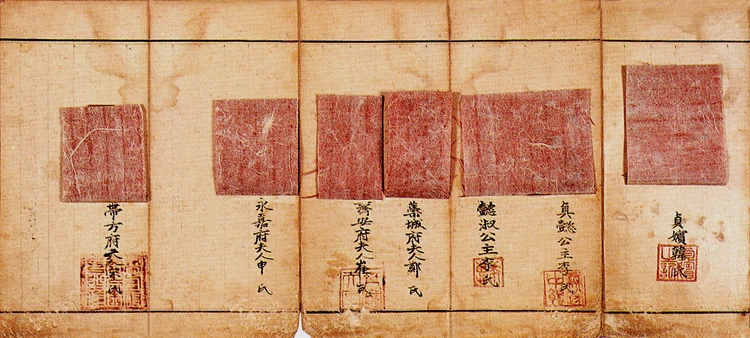 貞嬪韓氏
貞懿公主李氏
懿淑公主李氏
蘂城府夫人鄭氏
安府夫人崔氏
永嘉府夫人申氏
帶方府夫人宋氏